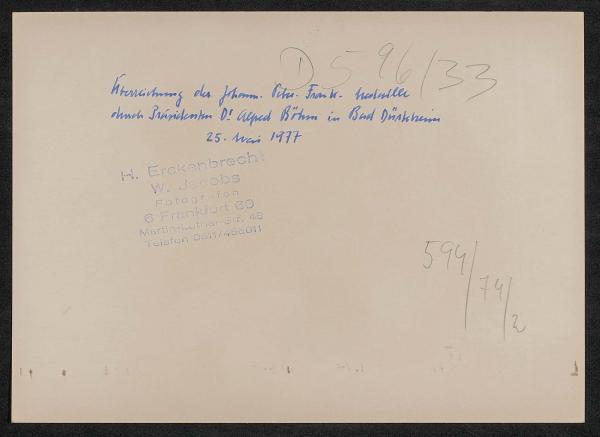 D 596/33
Überreichung der Johann-Peter-Frank-Medaille
durch Präsidenten Dr. Alfred Böhm in Bad Dürkheim
25. Mai 1977
H. Erckenbrecht
W. Jacobs
Fotografen
6 Frankfurt 60
Martin-Luther-Str. 48
Telefon 0611/
594/74/2